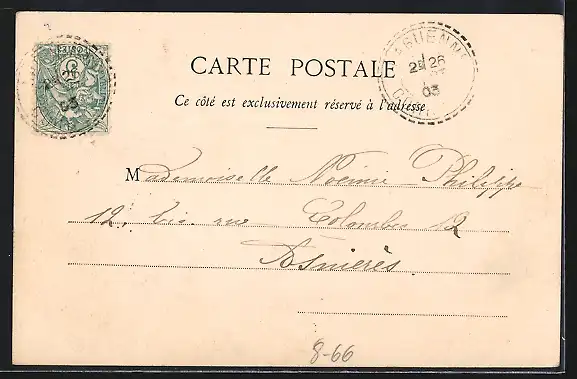 CARTE POSTALE
Ce côté est exclusivement réservé à l'adresse
Mademoiselle Noémie Philippe
12, bis rue Colombes 12
Asnières
8-66
26
03
5
03